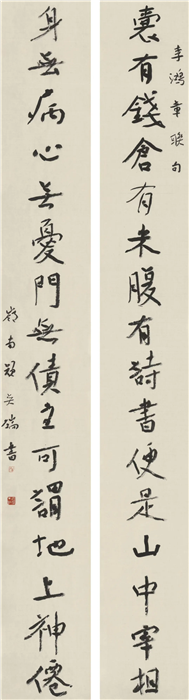 李鴻章聯句
囊有錢倉有米腹有詩書便是山中宰相
身無病心無憂門無債主可謂地上神僊
嶺南
書